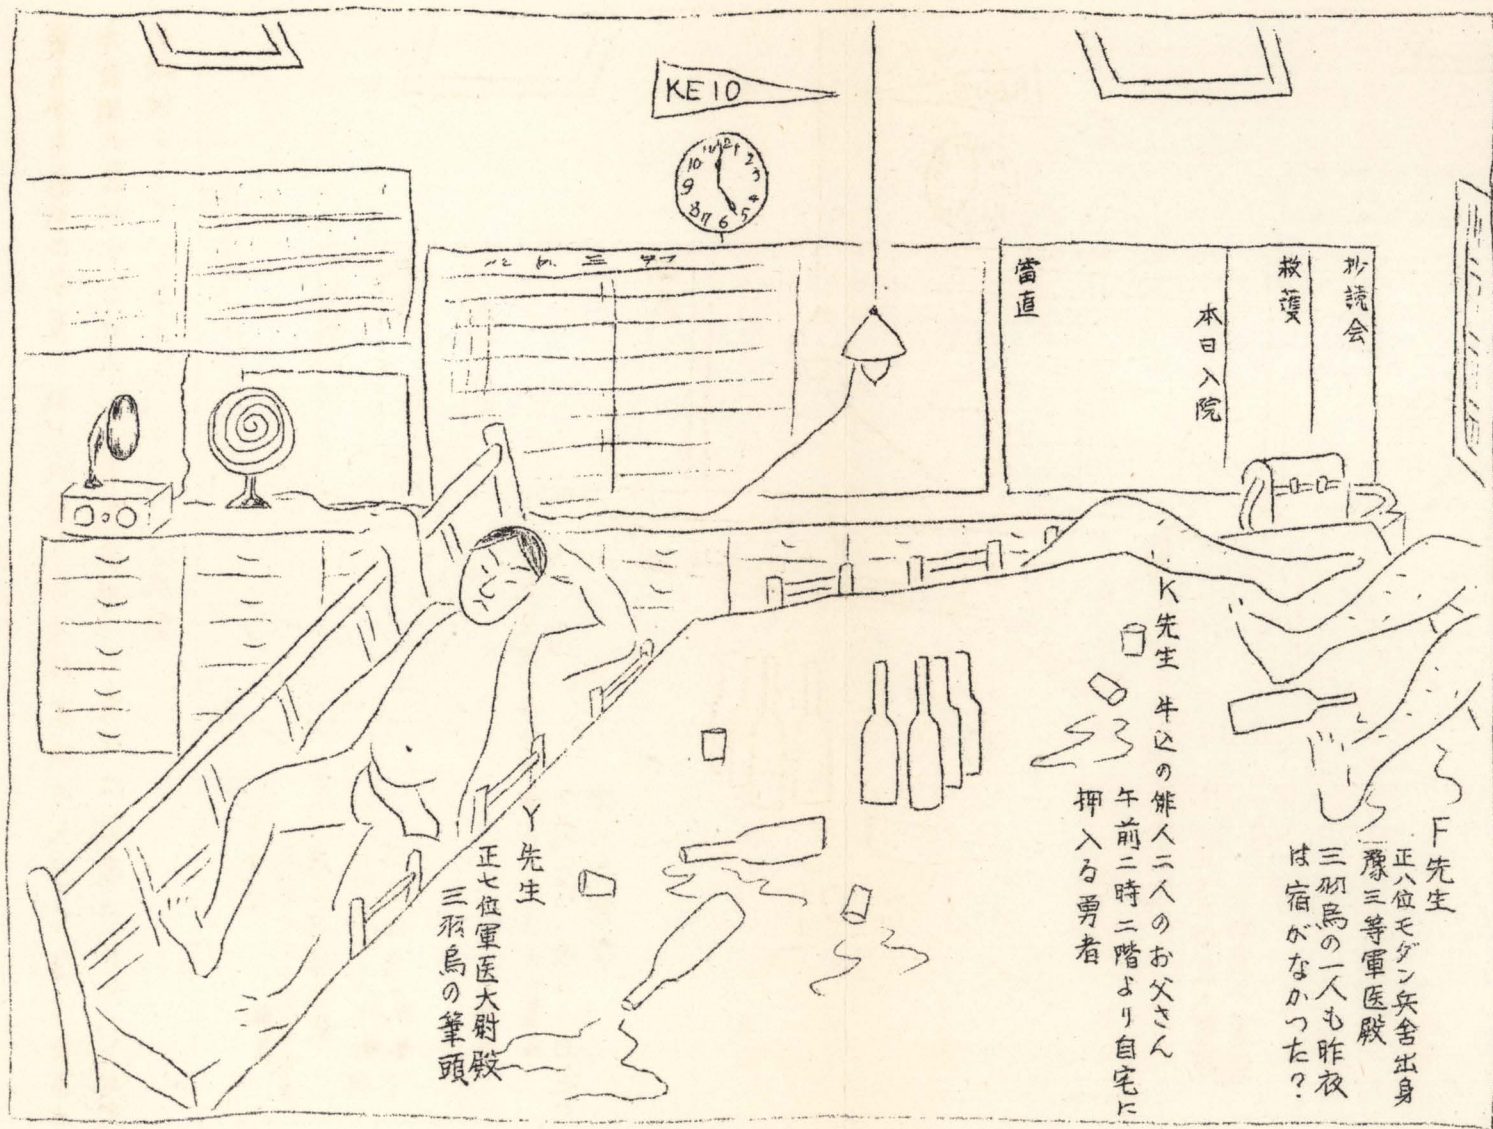 KEIO
12 1 2 3 4 5 6 7 8 9 10
抄読会
救護
本日入院
當直
F先生
正八位モダン兵舎出身
豫三等軍医殿
三羽烏の一人も昨夜
は宿がなかつた?
K先生 牛込の俳人二人のお父さん
午前二時二階より自宅に
押入る勇者
Y先生
正七位軍医大尉殿
三羽烏の筆頭